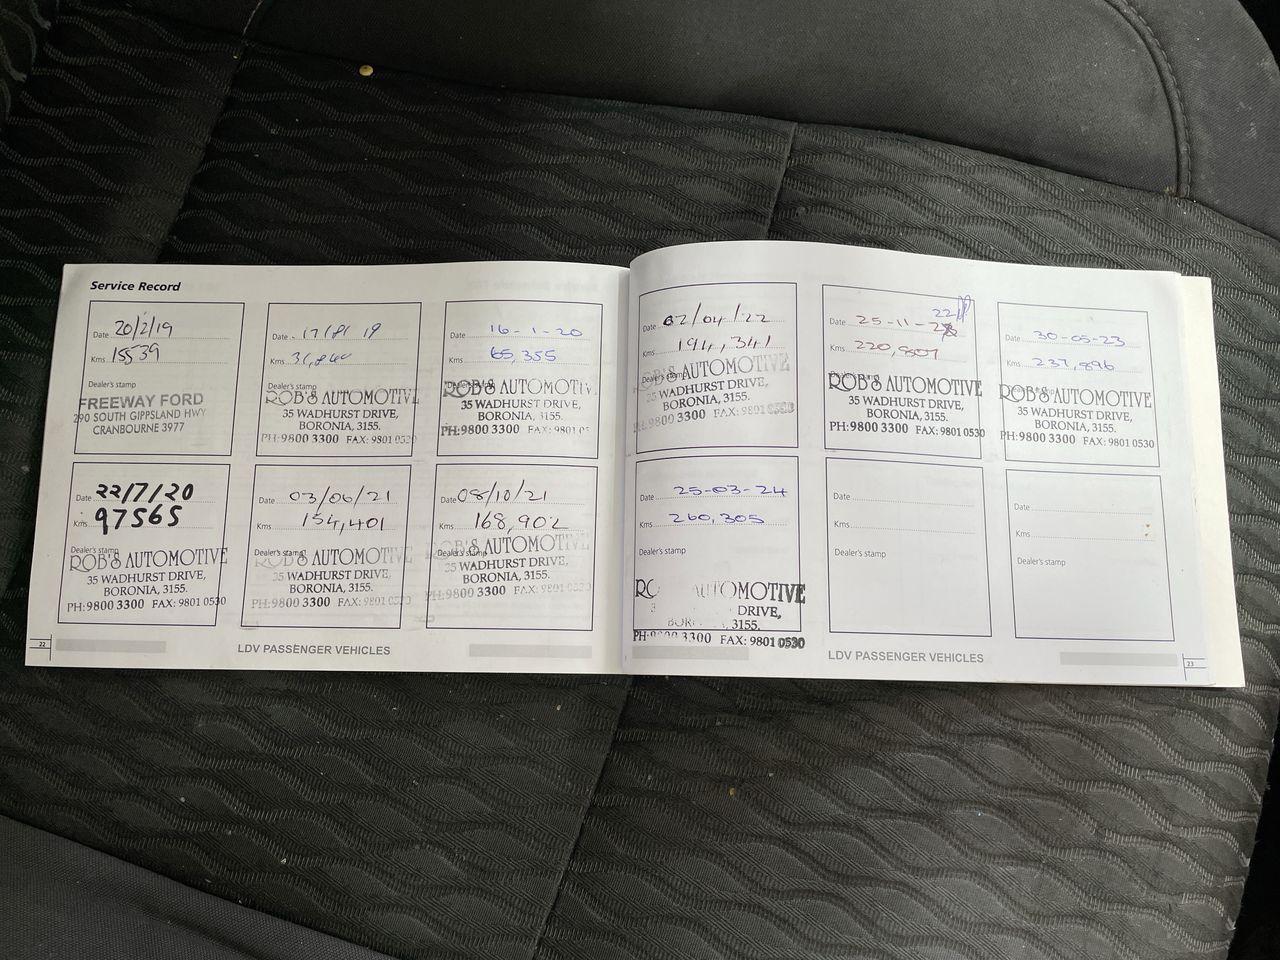 Service Record
Date 20/2/19
Kms 15539
Dealer's stamp
FREEWAY FORD
290 SOUTH GIPPSLAND HWY
CRANBOURNE 3977
Date 17/8/19
Kms
Dealer's stamp
ROB'S AUTOMOTIVE
35 WADHURST DRIVE,
BORONIA, 3155.
PH:9800 3300 FAX: 9801 0530
Date 16-1-20
Kms 65,355
Dealer's stamp
ROB'S AUTOMOTIV
35 WADHURST DRIVE,
BORONIA, 3155.
PH:9800 3300 FAX: 9801 0
Date 22/7/20
Kms 97565
Dealer's stamp
ROB'S AUTOMOTIVE
35 WADHURST DRIVE,
BORONIA, 3155.
PH:9800 3300 FAX: 9801 0530
Date 03/06/21
Kms 154,401
Dealer's stamp
ROB'S AUTOMOTIVE
35 WADHURST DRIVE,
BORONIA, 3155.
PH:9800 3300 FAX: 9801 0530
Date 08/10/21
Kms 168,902
Dealer's stamp
ROB'S AUTOMOTIVE
35 WADHURST DRIVE,
BORONIA, 3155.
PH:9800 3300 FAX: 9801 0530
22
LDV PASSENGER VEHICLES
Date 02/04/22
Kms 194,341
Dealer's stamp
ROB'S AUTOMOTIVE
35 WADHURST DRIVE,
BORONIA, 3155.
PH:9800 3300 FAX: 9801 0530
22
Date 25-11-2
Kms 220,807
Dealer's stamp
ROB'S AUTOMOTIVE
35 WADHURST DRIVE,
BORONIA, 3155.
PH:9800 3300 FAX: 9801 0530
Date 30-05-23
Kms 237,896
Dealer's stamp
ROB'S AUTOMOTIVE
35 WADHURST DRIVE,
BORONIA, 3155.
PH:9800 3300 FAX: 9801 0530
Date 25-03-24
Kms 260,305
Dealer's stamp
RO AUTOMOTIVE
3 DRIVE,
BOR 3155.
PH:9800 3300 FAX: 9801 0530
Date
Kms
Dealer's stamp
Date
Kms
Dealer's stamp
LDV PASSENGER VEHICLES
23